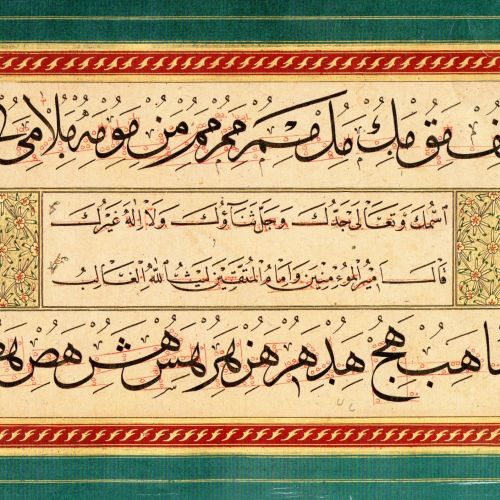 مق مك مل مم مم مم من مو مه ملا مى
اسمك وتعالى جدك وجل ثناؤك ولا اله غيرك
قال امير المؤمنين وامام المتقين ليث الله الغالب
هب هج هد هر هس هش هص